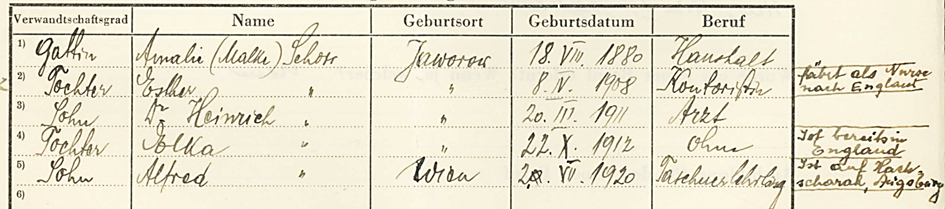 Verwandtschaftsgrad Name Geburtsort Geburtsdatum Beruf
1) Gattin Amalie (Malke) Schorr Jaworow 18. VIII. 1880 Haushalt
2) Tochter Esther " " 8. V. 1908 Kontoristin fährt als Nurse
nach England
3) Sohn Dr Heinrich " " 20. III. 1911 Arzt
4) Tochter Elka " " 22. X. 1912 ohne Ist bereits in
England
5) Sohn Alfred " Wien 20. VII. 1920 Taschnerlehrling Ist auf Hach-
scharah, Augsburg
6)